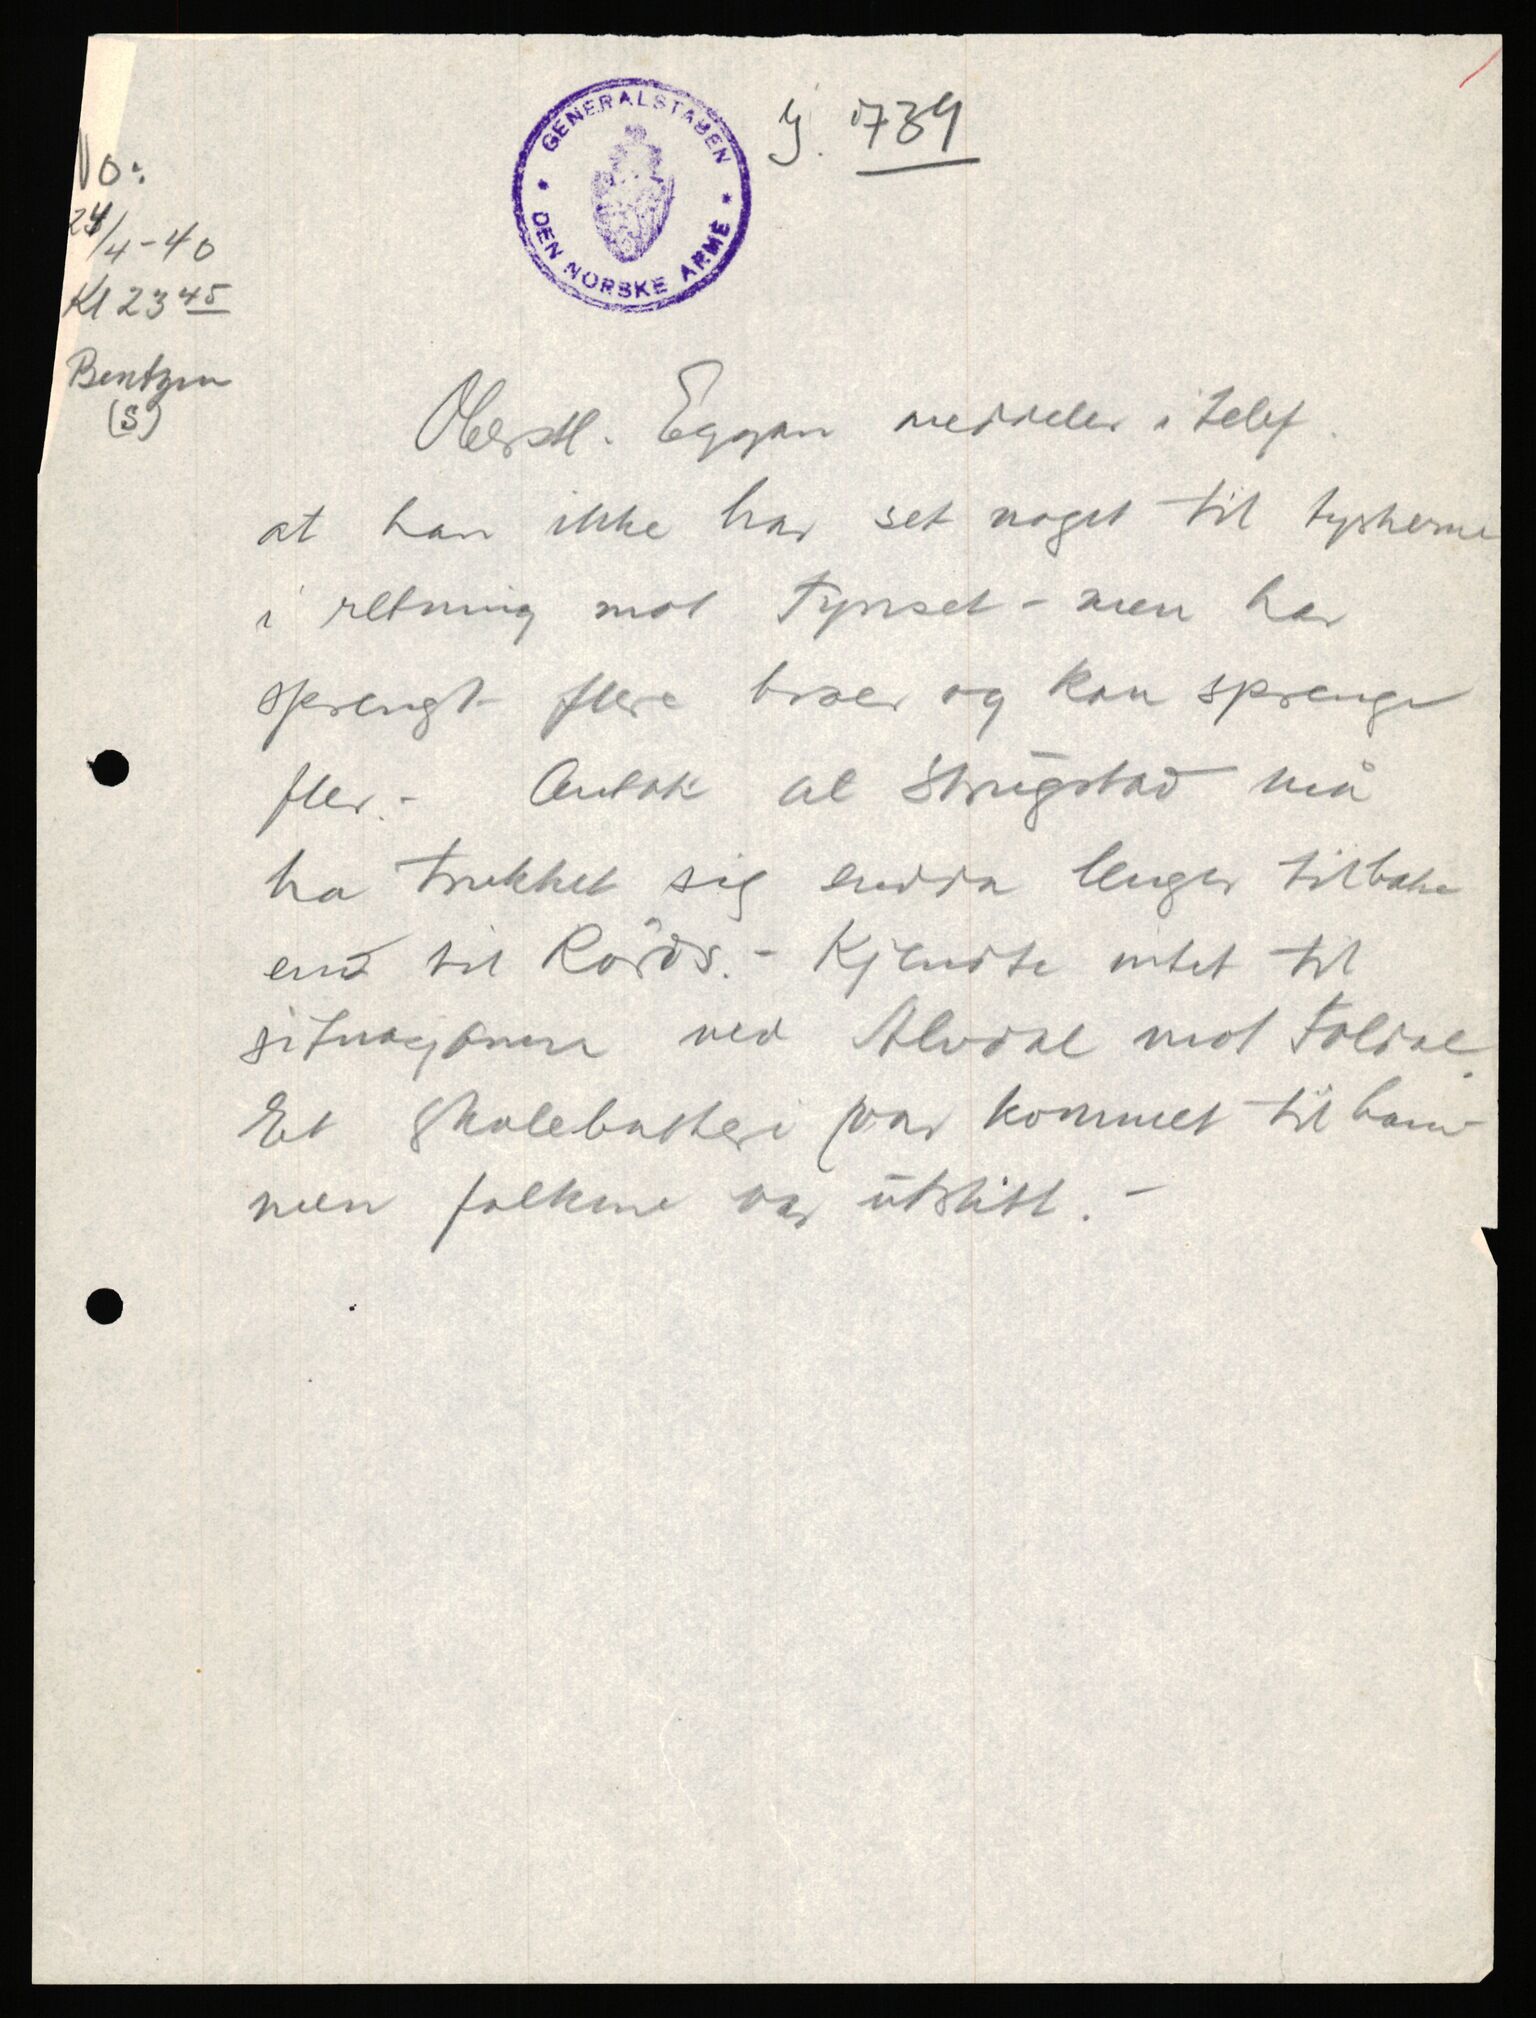 GENERALSTABEN
DEN NORSKE ARME
J. 739
No:
24/4-40
Kl 23 45
Bentzen
(S)
Oberstl. Eggen meddeler i telef.
at han ikke har set noget til tyskerne
i retning mot Tynset - men har
sprengt flere broer og kan sprenge
fler. - Antok at Strugstad må
ha trukket sig endda lenger tilbake
end til Röros. - Kjendte intet til
situasjonen ved Alvdal mot Foldal.
Et skolebatteri var kommet til ham
men folkene var utslitt. -